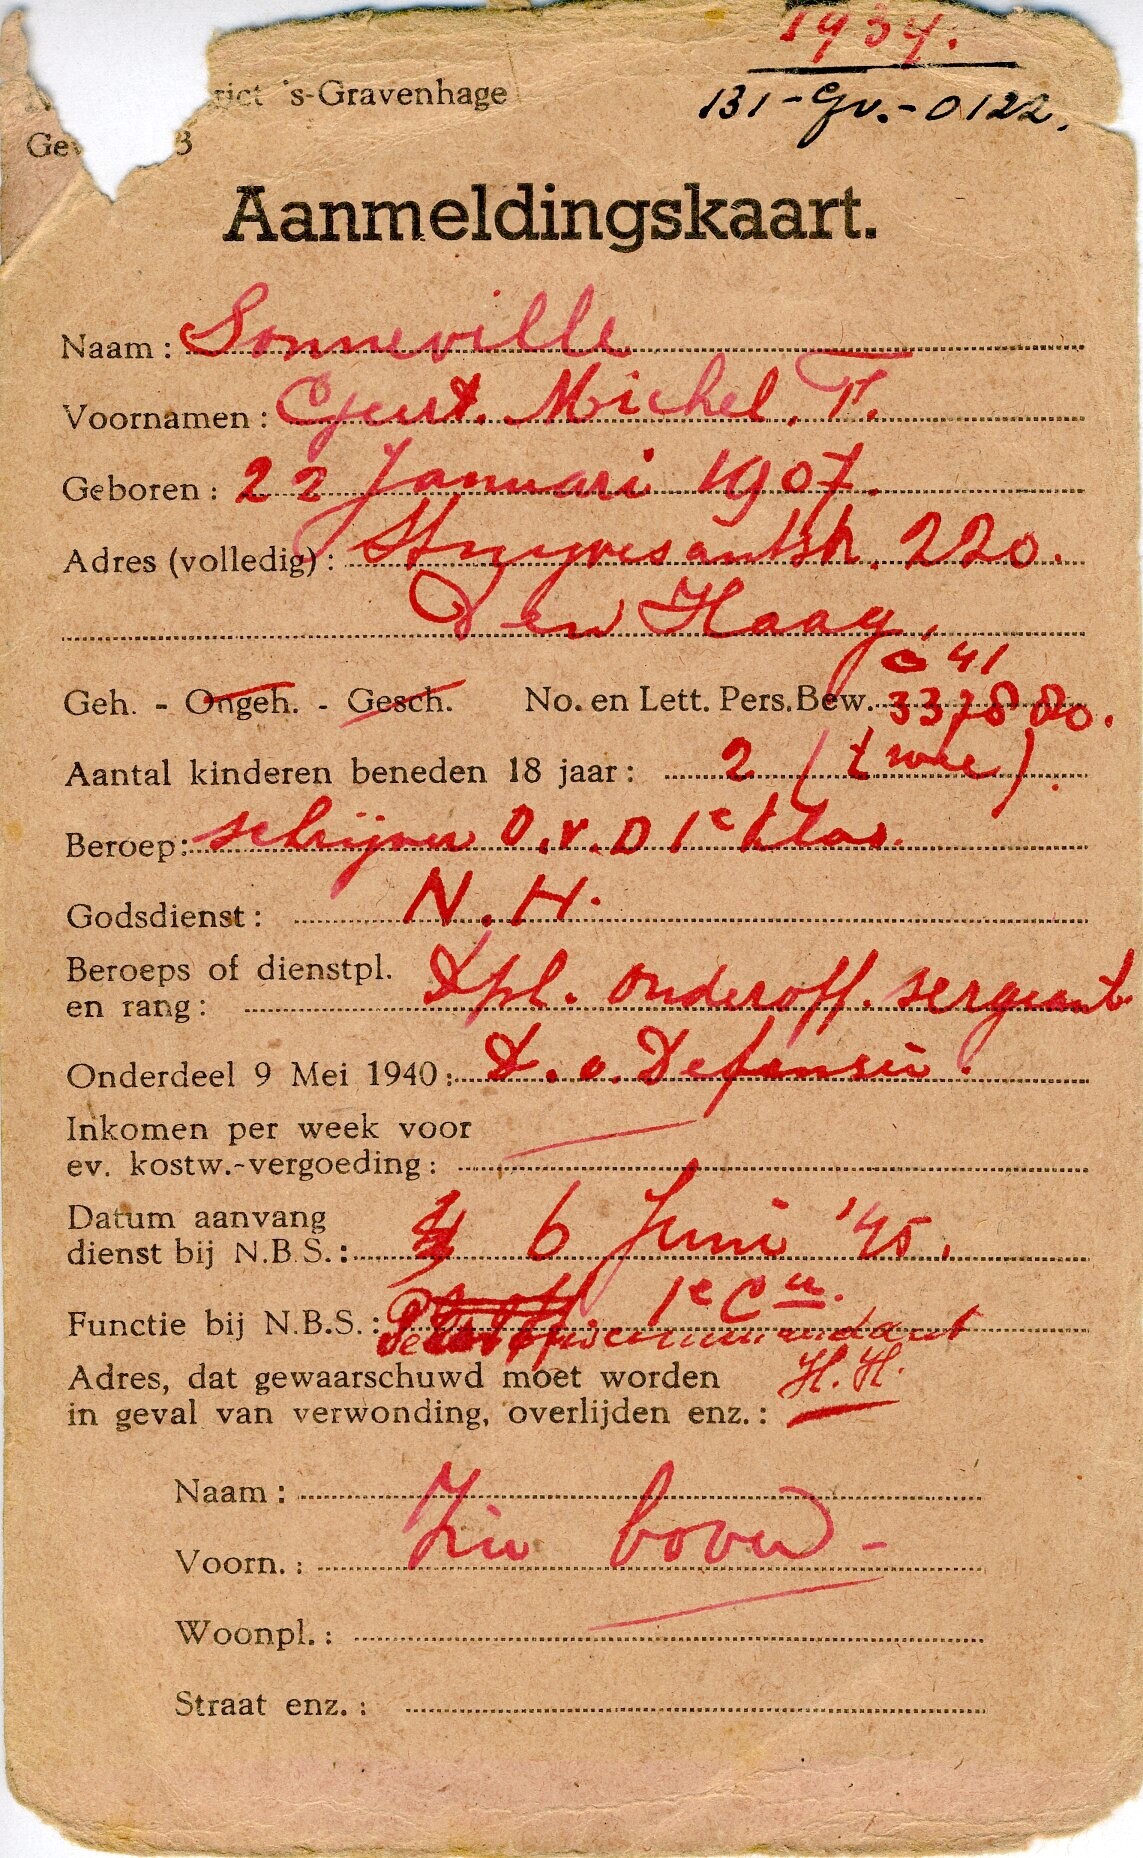 1934.
rict 's-Gravenhage
131-Gv.-0122.
Aanmeldingskaart.
Naam: Sonneville
Voornamen: Geurt. Michel. F.
Geboren: 22 Januari 1907.
Adres (volledig): Stuyvesantstr. 220.
Den Haag.
C 41
Geh. - Ongeh. - Gesch. No. en Lett. Pers.Bew.
Aantal kinderen beneden 18 jaar: 2 (twee).
Beroep: schrijver D.v.D 1e klas.
Godsdienst: N.H.
Beroeps of dienstpl.
en rang: Dpl. onderoff. sergeant
Onderdeel 9 Mei 1940: D. v. Defensie.
Inkomen per week voor
ev. kostw.-vergoeding:
Datum aanvang
dienst bij N.B.S.: 6 Juni '45.
1e Cn.
Functie bij N.B.S.:
Adres, dat gewaarschuwd moet worden
H.H.
in geval van verwonding, overlijden enz.:
Naam:
Zie boven -
Voorn.:
Woonpl.:
Straat enz.: